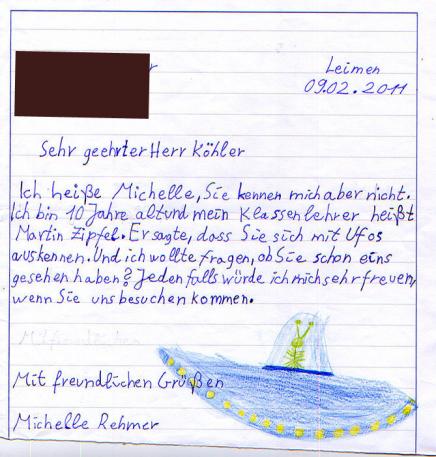 Leimen
09.02.2011
Sehr geehrter Herr Köhler
Ich heiße Michelle, Sie kennen mich aber nicht.
Ich bin 10 Jahre alt und mein Klassenlehrer heißt
Martin Zipfel. Er sagte, dass Sie sich mit Ufos
auskennen. Und ich wollte fragen, ob Sie schon eins
gesehen haben? Jedenfalls würde ich mich sehr freuen,
wenn Sie uns besuchen kommen.
Mit freundlichen Grüßen
Michelle Rehmer